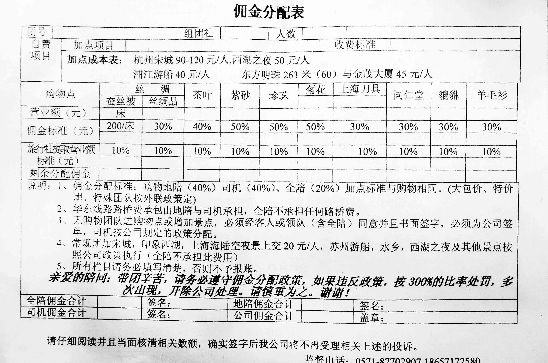 佣金分配表
组团社 人数
自费项目 加点项目 收费标准
加点成本表：杭州宋城 90-120 元/人,西湖之夜 50 元/人
浦江游船 40 元/人 东方明珠 263 米（60）与金茂大厦 45 元/人
购物点 丝绸 茶叶 紫砂 珍珠 菊花 上海刀具 同仁堂 貔貅 羊毛衫
蚕丝被 丝绸品
营业额（元） 床
佣金标准（元） 200/床 30% 40% 50% 50% 50% 30% 30% 30% 30%
10% 10% 10% 10% 10% 10% 10% 10% 10% 10%
标准（元）
剩余分配佣金
说明：1、佣金分配标准：购物地陪（40%）司机（40%）、全陪（20%）加点标准与购物相同。（大包价、特价
团、特殊团队按外联核策定）
2、华东线路路桥费等包由地陪与司机承担，全陪不承担任何路桥费。
3、无购物团队走购物点或增加景点，必须经客人或领队（含全陪）同意并且书面签字，必须为公司签
单，司机按公司规定的政策分配。
4、常规地加宋城，印象西湖，上海海陆空夜景上交 20 元/人，苏州游船，水乡，西湖之夜及其他景点按
照公司政策执行（全陪不承担此费用）
5、所有栏目请务必填写清楚，否则不予报账。
亲爱的陪同：带团辛苦，请务必遵守佣金分配政策，如果违反政策，按 300%的比率处罚，多
次出现，开除公司处理。请慎重为之。谢谢！
全陪佣金合计 签名： 地陪佣金合计 签名：
司机佣金合计 签名： 公司佣金合计 盖章：
请仔细阅读并且当面核清相关数额，确实签字后我公司将不再受理相关上述的投诉。
监督电话：0571-87702907 18657172580